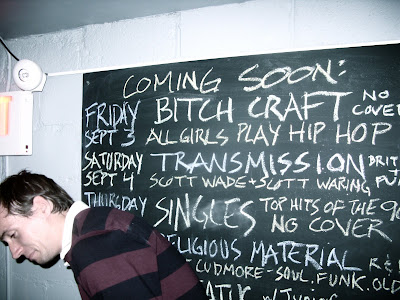 COMING SOON:
FRIDAY BITCH CRAFT NO COVER
SEPT 3 ALL GIRLS PLAY HIP HOP
SATURDAY TRANSMISSION
SEPT 4 SCOTT WADE + SCOTT WARING
THURSDAY SINGLES TOP HITS OF THE 90
NO COVER
RELIGIOUS MATERIAL
CUDMORE - SOUL. FUNK. OLD